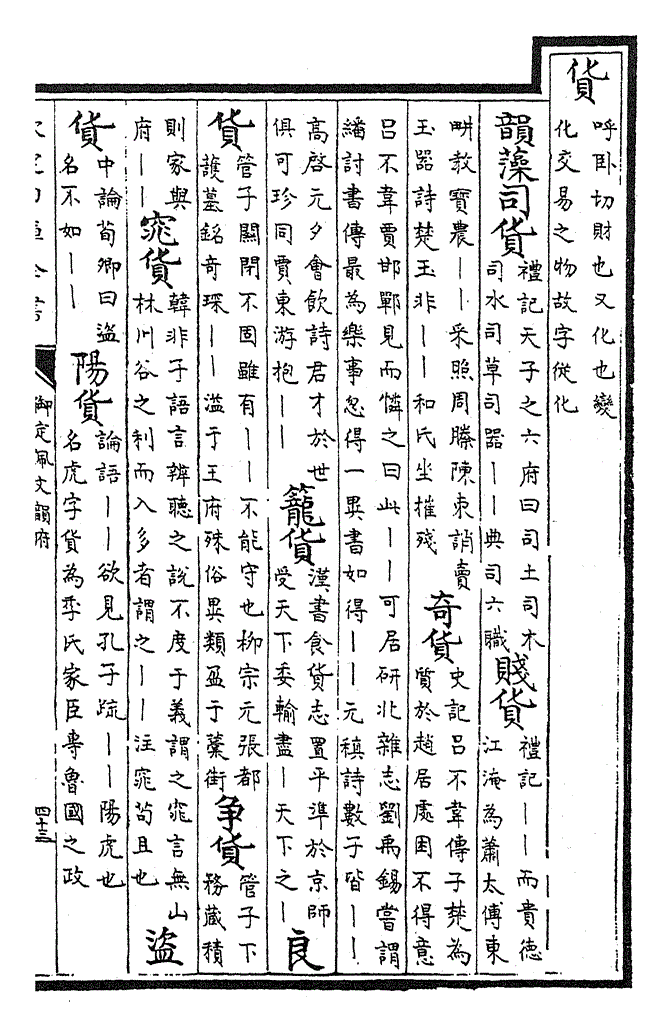 貨
呼卧切財也又化也變
化交易之物故字從化
韻藻司貨
禮記天子之六府曰司土司木
司水司草司器｜｜典司六職
賤貨
禮記｜｜而貴德
江淹為蕭太傅東
畊教寳農｜｜采照周媵陳束誚賣
玉器詩楚玉非｜｜和氏坐摧殘
奇貨
史記呂不韋傳子楚為
質於趙居處困不得意
呂不韋賈邯鄲見而憐之曰此｜｜可居研北雜志劉禹錫嘗謂
繙討書傳最為樂事忽得一異書如得｜｜元稹詩數子皆｜｜
高啓元夕會飲詩君才於世
俱可珍同賈東游抱｜｜
籠貨
漢書食貨志置平準於京師
受天下委輸盡｜天下之｜
良
貨
管子關閉不固雖有｜｜不能守也柳宗元張都
護墓銘奇琛｜｜溢于王府殊俗異類盈于藁街
争貨
管子下
務藏積
則家與
府｜｜
窕貨
韓非子語言辨聽之說不度于義謂之窕言無山
林川谷之利而入多者謂之｜｜注窕苟且也
盜
貨
中論荀卿曰盜
名不如｜｜
陽貨
論語｜｜欲見孔子疏｜｜陽虎也
名虎字貨為季氏家臣專魯國之政
御定佩文韻府
四十三